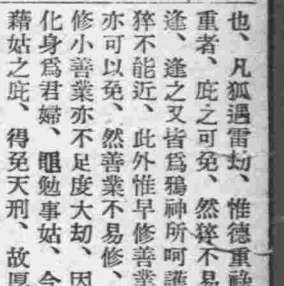 也、凡狐遇雷劫、惟德重祿
重者、庇之可免、然猝不易
逢、逢之又皆爲鴉神所呵護
猝不能近、此外惟早修善業
亦可以免、然善業不易修、
修小善業亦不足度大劫、因
化身爲君婦、黽勉事姑、今
藉姑之庇、得免天刑、故厚